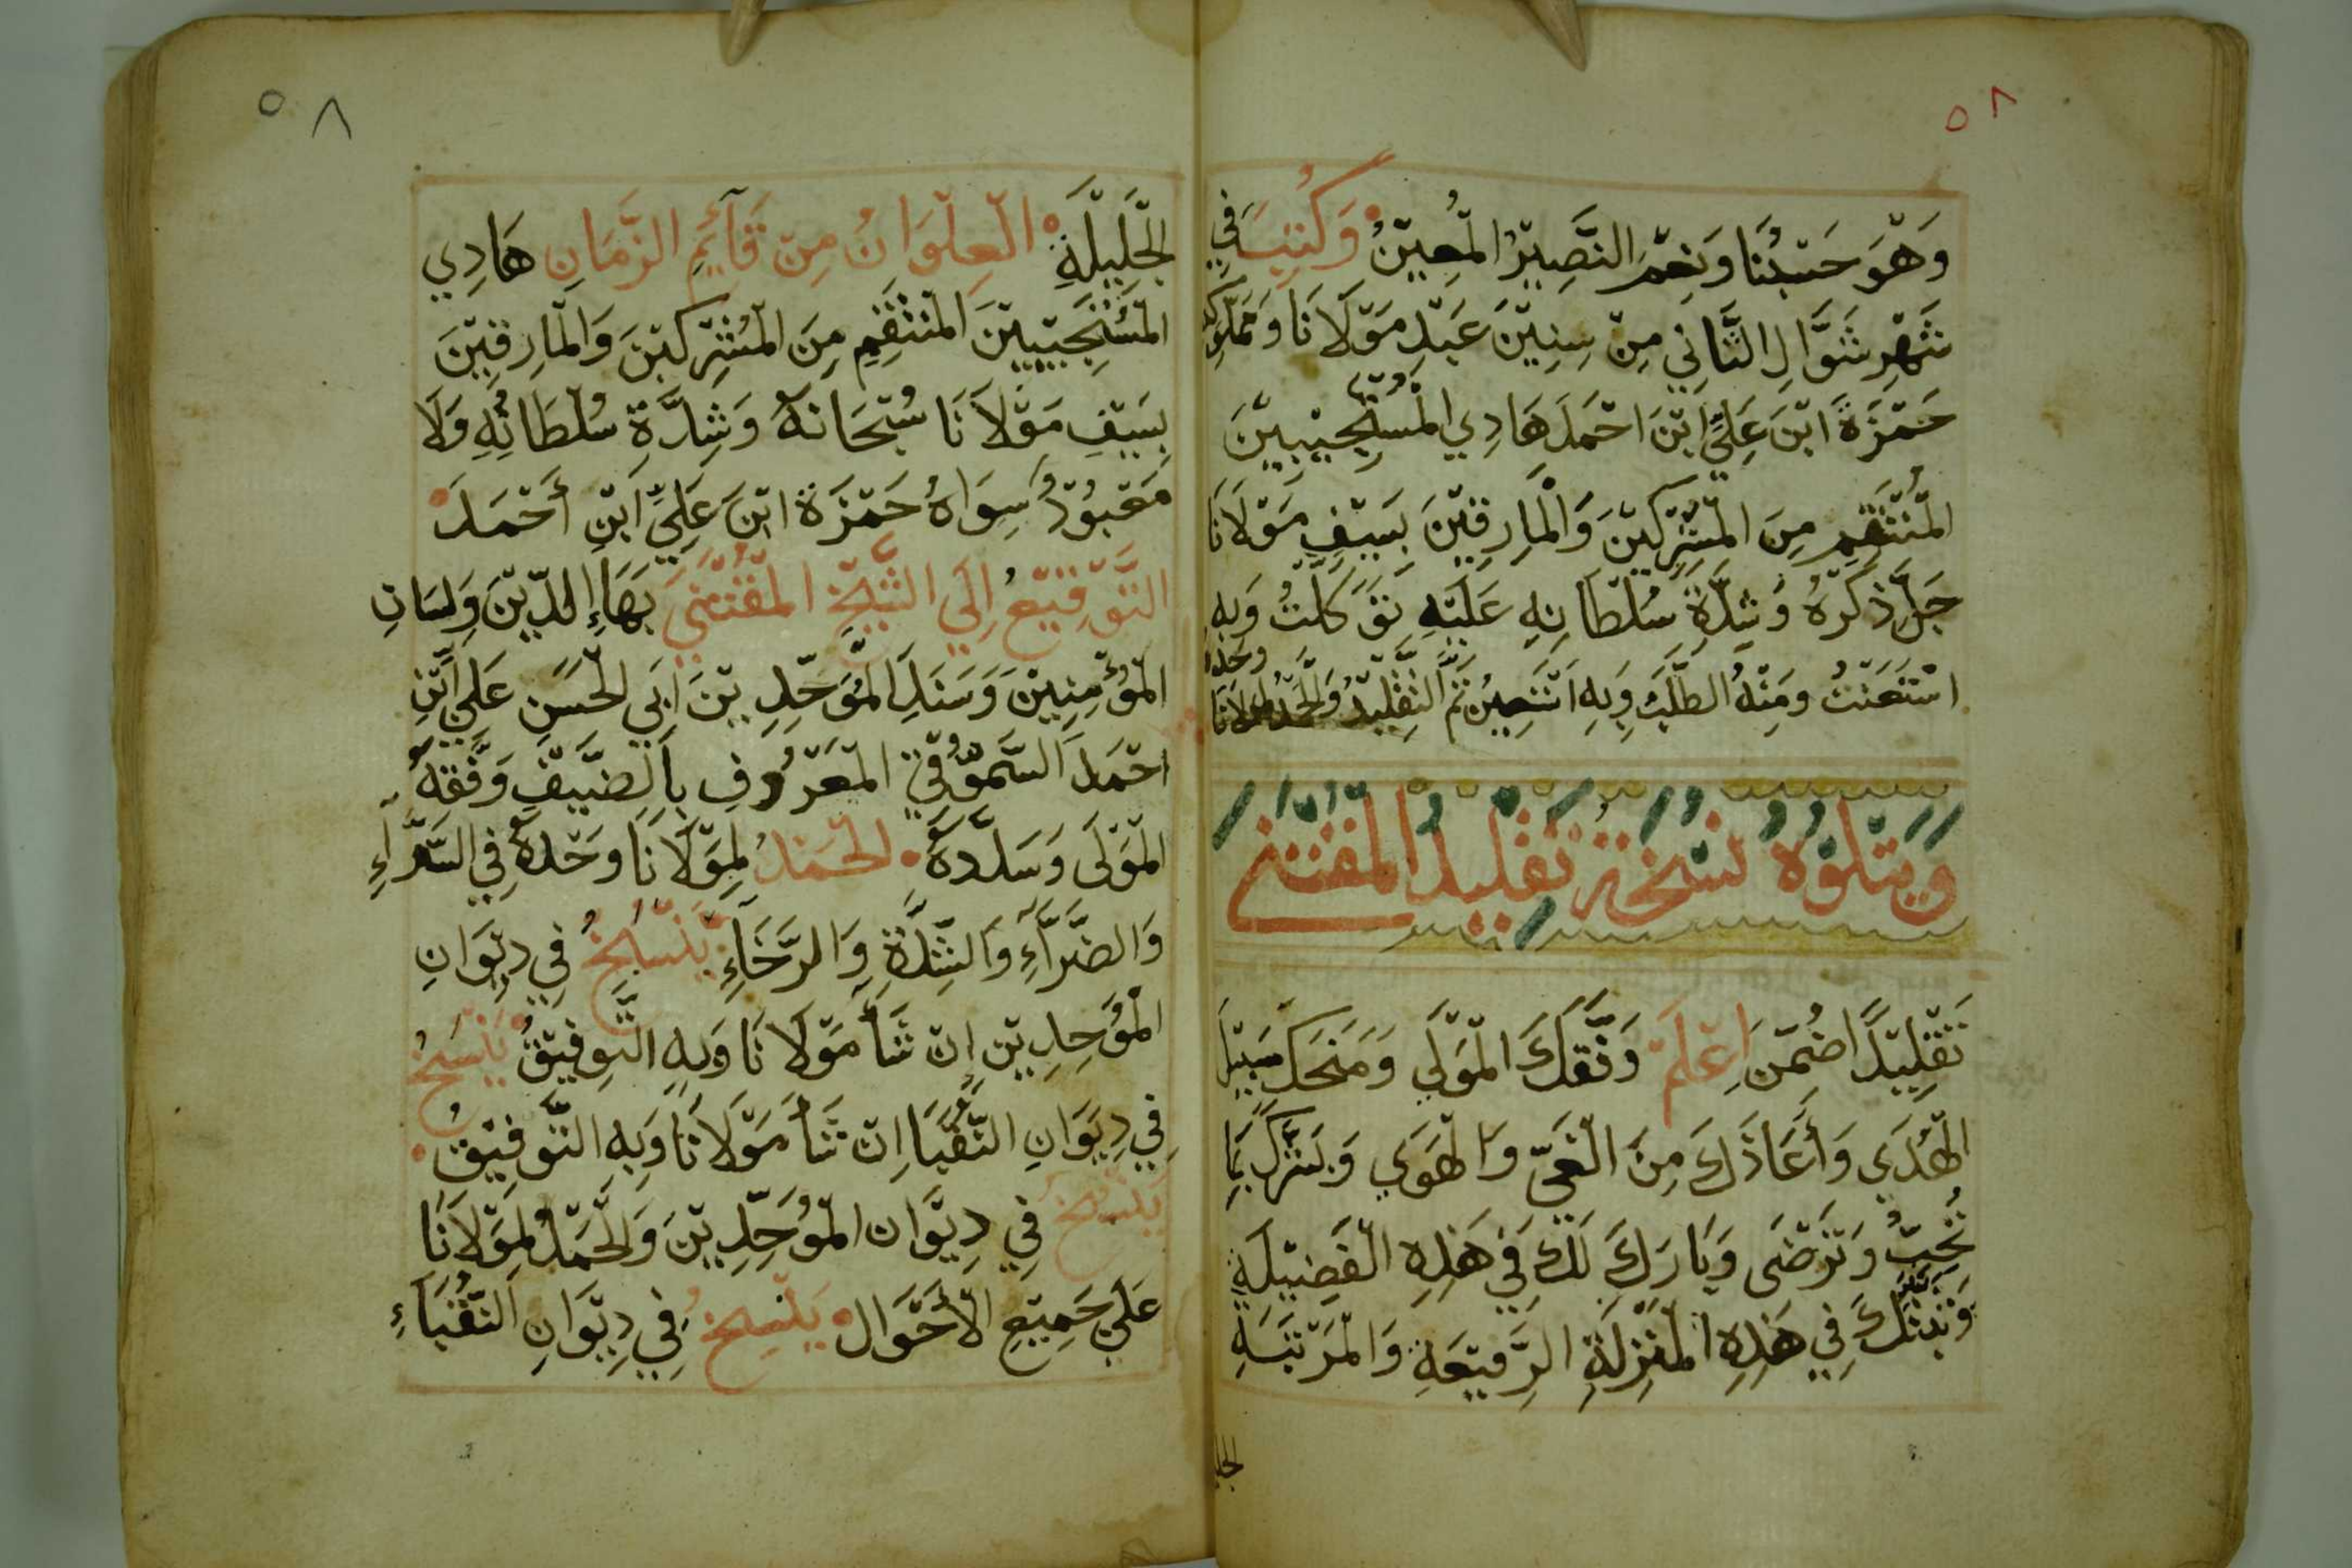 ٥٨
وَهْوَ حَسْبُنَا وَنِعْمَ النَّصِيْرُ الْمُعِيْنُ وَكُتِبَ فِي
شَهْرِ شَوَّالِ الثَّانِي مِنْ سِنِيْنَ عَبْدِ مَوْلَانَا وَمَمْلُوكِهِ
حَمْزَةَ ابْنَ عَلِيِّ ابْنَ احْمَدَ هَادِي الْمُسْتَجِيْبِيْنَ
الْمُنْتَقِمِ مِنَ الْمُشْرِكِيْنَ وَالْمَارِقِيْنَ بِسَيْفِ مَوْلَانَا
جَلَّ ذِكْرَهُ وَشِدَّةِ سُلْطَانِهِ عَلَيْهِ تَوَكَلْتُ وَبِهِ
اسْتَعَنْتُ وَمِنْهُ الطَّلَبُ وَبِهِ اسْتَعِيْنُ تَمَّ التَّقْلِيْدُ وَالْحَمْدُ لِمَوْلَانَا وَحْدَهُ
وَيَتْلُوْهُ نُسْخَةُ تَقْلِيْدُ الْمُقْتَنَى
تَقْلِيْدًا ضُمِّنَ اِعْلَمْ وَفَّقَكَ الْمَوْلَى وَمَنَحَكَ سَبِيْلَ
الْهُدَى وَأَعَاذَكَ مِنَ الْغَيِّ وَالْهَوَى وَبَشَّرَكَ بِمَا
تُحِبُّ وَتَرْضَى وَبَارَكَ لَكَ فِي هَذِهِ الْفَضِيْلَةِ
فِي هَذِهِ الْمَنْزِلَةِ الرَّفِيْعَةِ وَالْمَرْتَبَةِ
الجليلة
٥٨
الْجَلِيْلَةِ الْعِلْوَانُ مِنْ قَآئِمِ الزَّمَانِ هَادِي
الْمُسْتَجِيْبِيْنَ الْمُنْتَقِمِ مِنَ الْمُشْرِكِيْنَ وَالْمَارِقِيْنَ
بِسَيْفِ مَوْلَانَا سُبْحَانَهُ وَشِدَّةِ سُلْطَانُهِ وَلَا
مَعْبُوْدٌ سِوَاهُ حَمْزَةَ ابْنَ عَلِيِّ ابْنِ أَحْمَدَ
التَّوْقِيْعُ اِلَى الشَّيْخِ الْمُقْتَنَى بَهَاءِ الدِّيْنَ وَلِسَانِ
الْمُؤْمِنِيْنَ وَسَنَدِ الْمُوَحِّدِيْنَ اَبِي الْحَسَنِ عَلِي ابْنِ
احْمَدَ السَّمُّوْقِيِّ الْمَعْرُوْفِ بِالضَّيْفِ وَفَّقَهُ
الْمَوْلَى وَسَدَّدَهُ الْحَمْدُ لِمَوْلَانَا وَحْدَهُ فِي السَّرَّآءِ
وَالضَّرَّآءِ وَالشِّدَّةِ وَالرَّخَآءِ يَنْسَخُ فِي دِيْوَانِ
الْمُوَحِدِيْنَ اِنْ شَآءَ مَوْلَانَا وَبِهِ التَّوفِيْقُ يَنْسَخُ
فِي دِيْوَانِ النُّقَبَا اِنْ شَآءَ مَوْلَانَا وَبِهِ التَّوْفِيْقُ
يَنْسَخُ فِي دِيْوَان الْمُوَحِّدِيْنَ وَالْحَمْدُ لِمَوْلَانَا
عَلَى جَمِيْعِ الْأَحْوَالِ يَنْسِخُ فِي دِيْوَانِ النُّقَبَآءِ